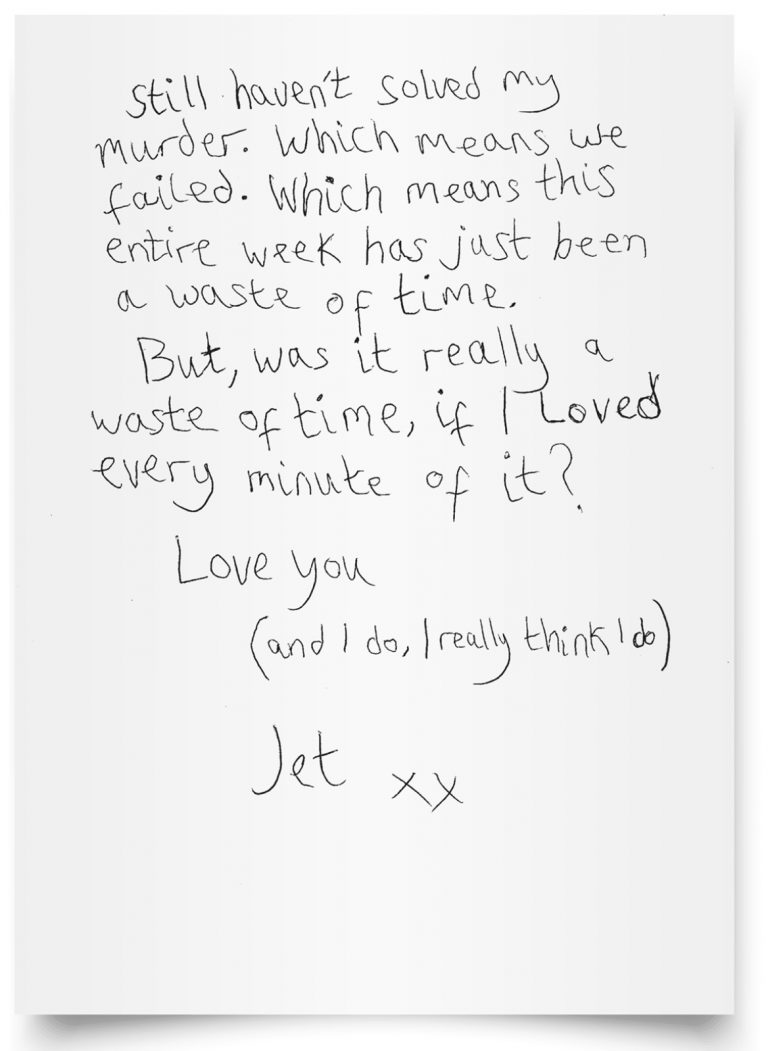 still haven't solved my
murder. Which means we
failed. Which means this
entire week has just been
a waste of time.
But, was it really a
waste of time, if I Loved
every minute of it?
Love you
(and I do, I really think I do)
Jet xx